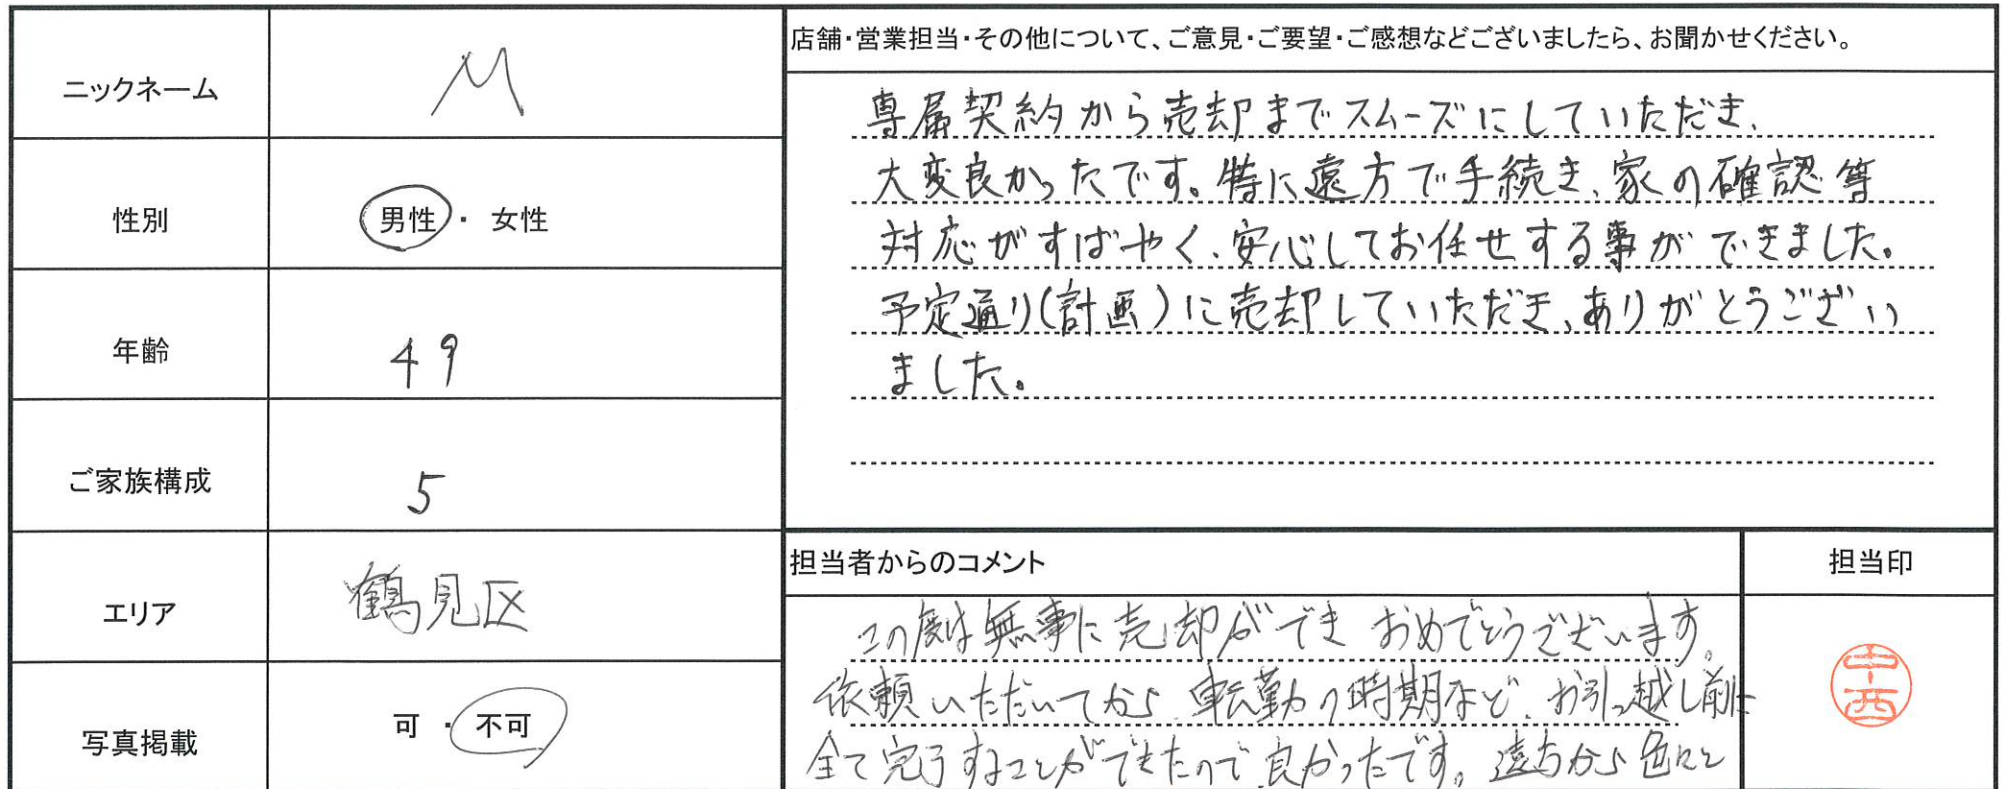 ニックネーム
M
性別
男性・女性
年齢
49
ご家族構成
5
エリア
鶴見区
写真掲載
可・不可
店舗・営業担当・その他について、ご意見・ご要望・ご感想などございましたら、お聞かせください。
専属契約から売却までスムーズにしていただき、
大変良かったです。特に遠方で手続き、家の確認等
対応がすばやく、安心してお任せする事ができました。
予定通り(計画)に売却していただき、ありがとうござい
ました。
担当者からのコメント
この度は無事に売却ができ おめでとうございます。
依頼いただいてから、転勤の時期など、お引っ越し前に
全て完了することができたので良かったです。遠方から色々と
担当印
中西